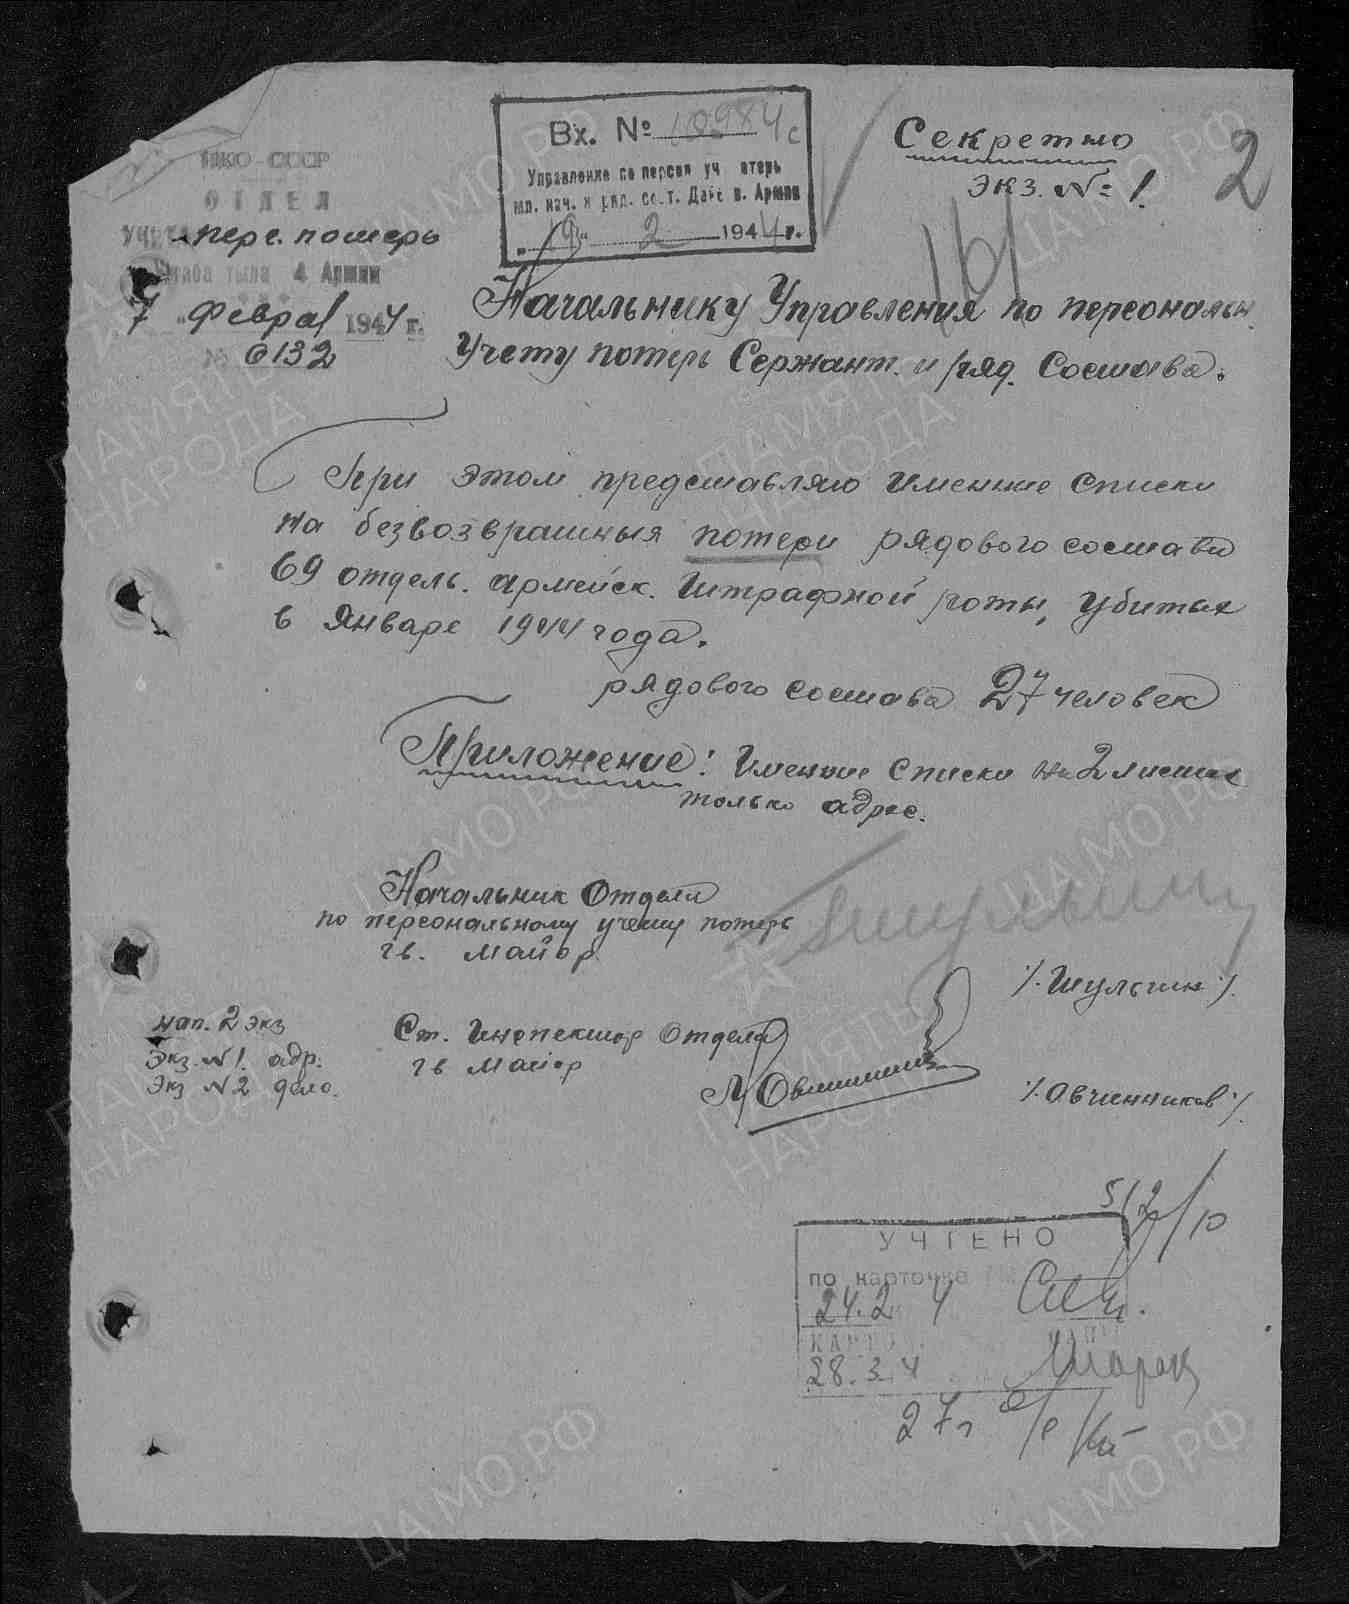 Вх. № 10984с
Управление по персон уч потерь
мл. нач. и ряд. сост. Дейс в. Армии
„19“ 2 1944 г.
Секретно
экз. № 1.
2
161
НКО СССР
ОТДЕЛ
Учета перс. потерь
Штаба тыла 4 Армии
7 „Феврал 1944 г.
№ 0132
Начальнику Управления по персональн.
Учету потерь Сержант. и ряд. Состава.
При этом представляю именные списки
на безвозвратныя потери рядового состава
69 отдель. армейск. Штрафной роты, убитых
в Январе 1944 года.
рядового состава 27 человек
Приложение: Именные списки на 2 листах
только адрес.
Начальник Отдела
по персональному учету потерь
гв. майор
/. Шульгин ./.
нап. 2 экз
Экз. N 1. адр.
Экз N 2 дело.
Ст. Инспектор Отдела
гв майор
/. Овчинников ./.
УЧТЕНО
по карточке
24.2 4
28.3.4
27
ПАМЯТЬ НАРОДА
ЦА МО РФ